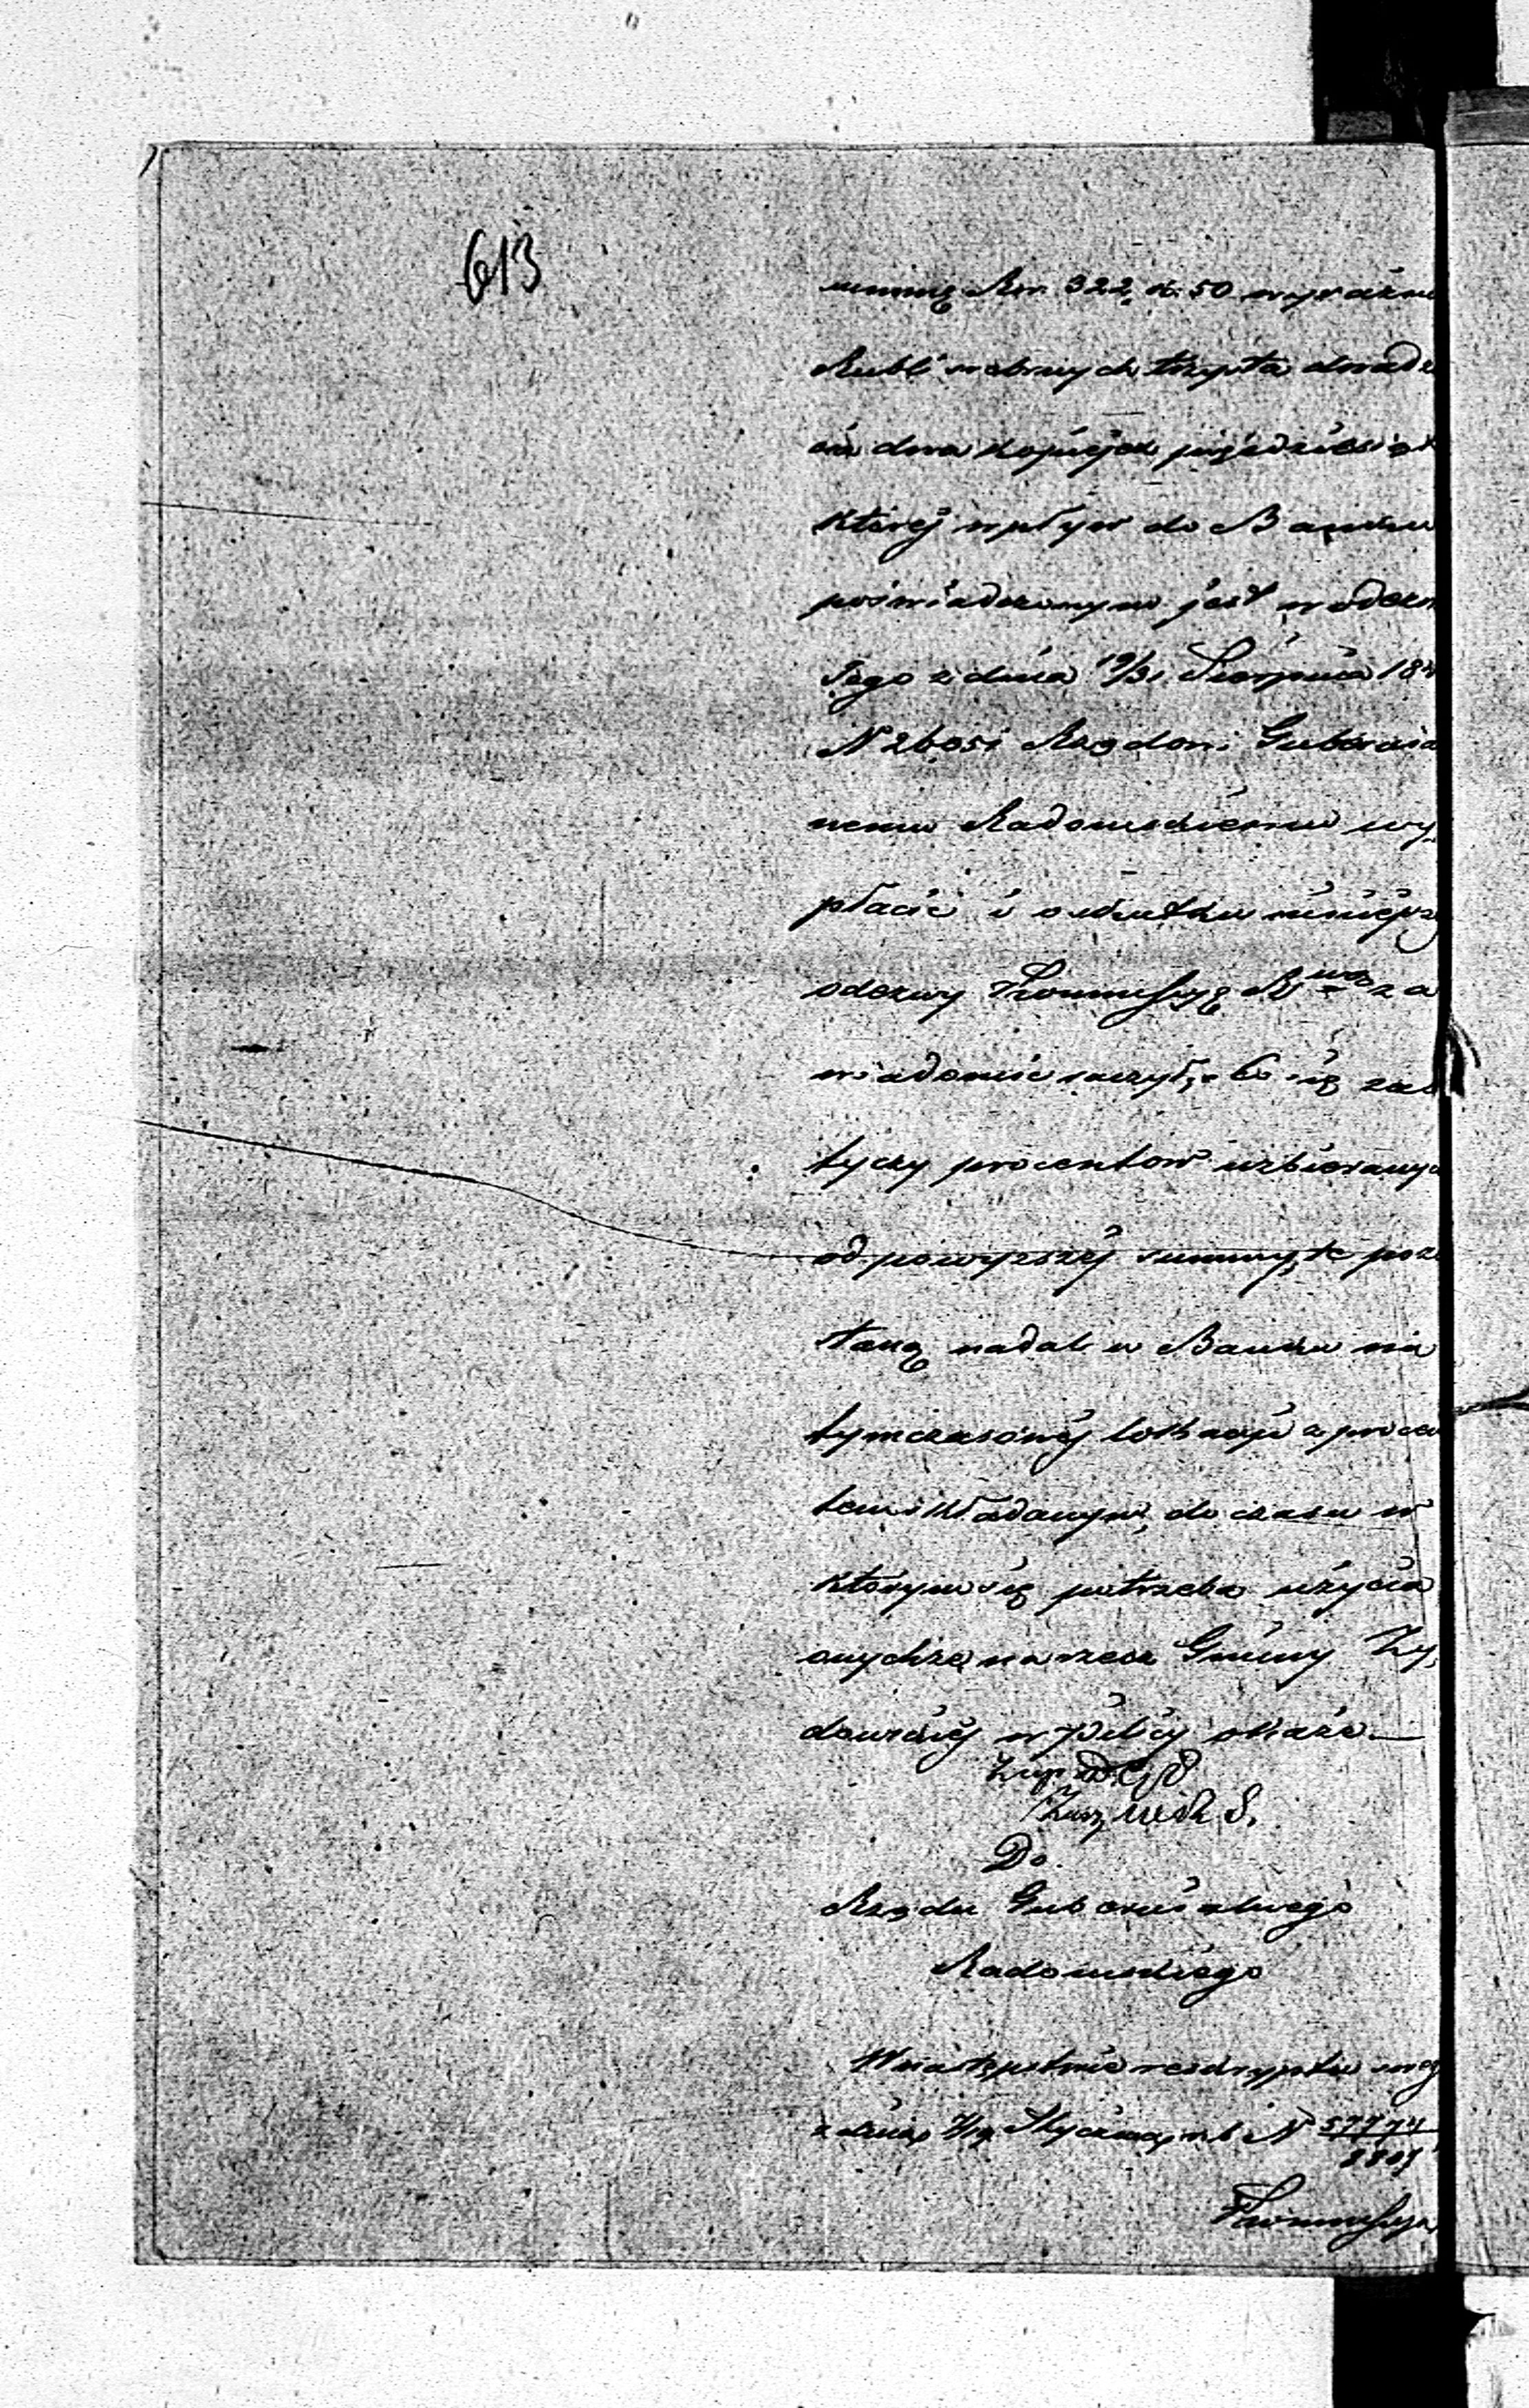 613
summę Rsr. 322 k. 50 wyraźnie
Rubli srebrnych trzysta dwadzie
ścia dwa kopiejek pięćdziesiąt
której wpływ do Banku
poświadczonym jest w odezw
Jego z dnia 19/31 Sierpnia 184
N 26051 Rządowi Gubernial
nemu Radomskiemu wy,
płacić i o skutku niniejszej
odezwy Kommissyę R wą za
wiadomić raczył, Co się zaś
tyczy procentow uzbieranych
od powyższej summy, te pozo
staną nadal w Banku na
tymczasowej lokacyi z procen
tem składanym, do czasu w
którym się potrzeba użycia
onychże na rzecz Gminy Ży,
dowskiej w Pilicy okaże.—
Do.
Rządu Gubernialnego
Radomskiego
W następstwie reskryptu sweg
z dnia 7/19 Stycznia r. b. N 57774
Kommissya